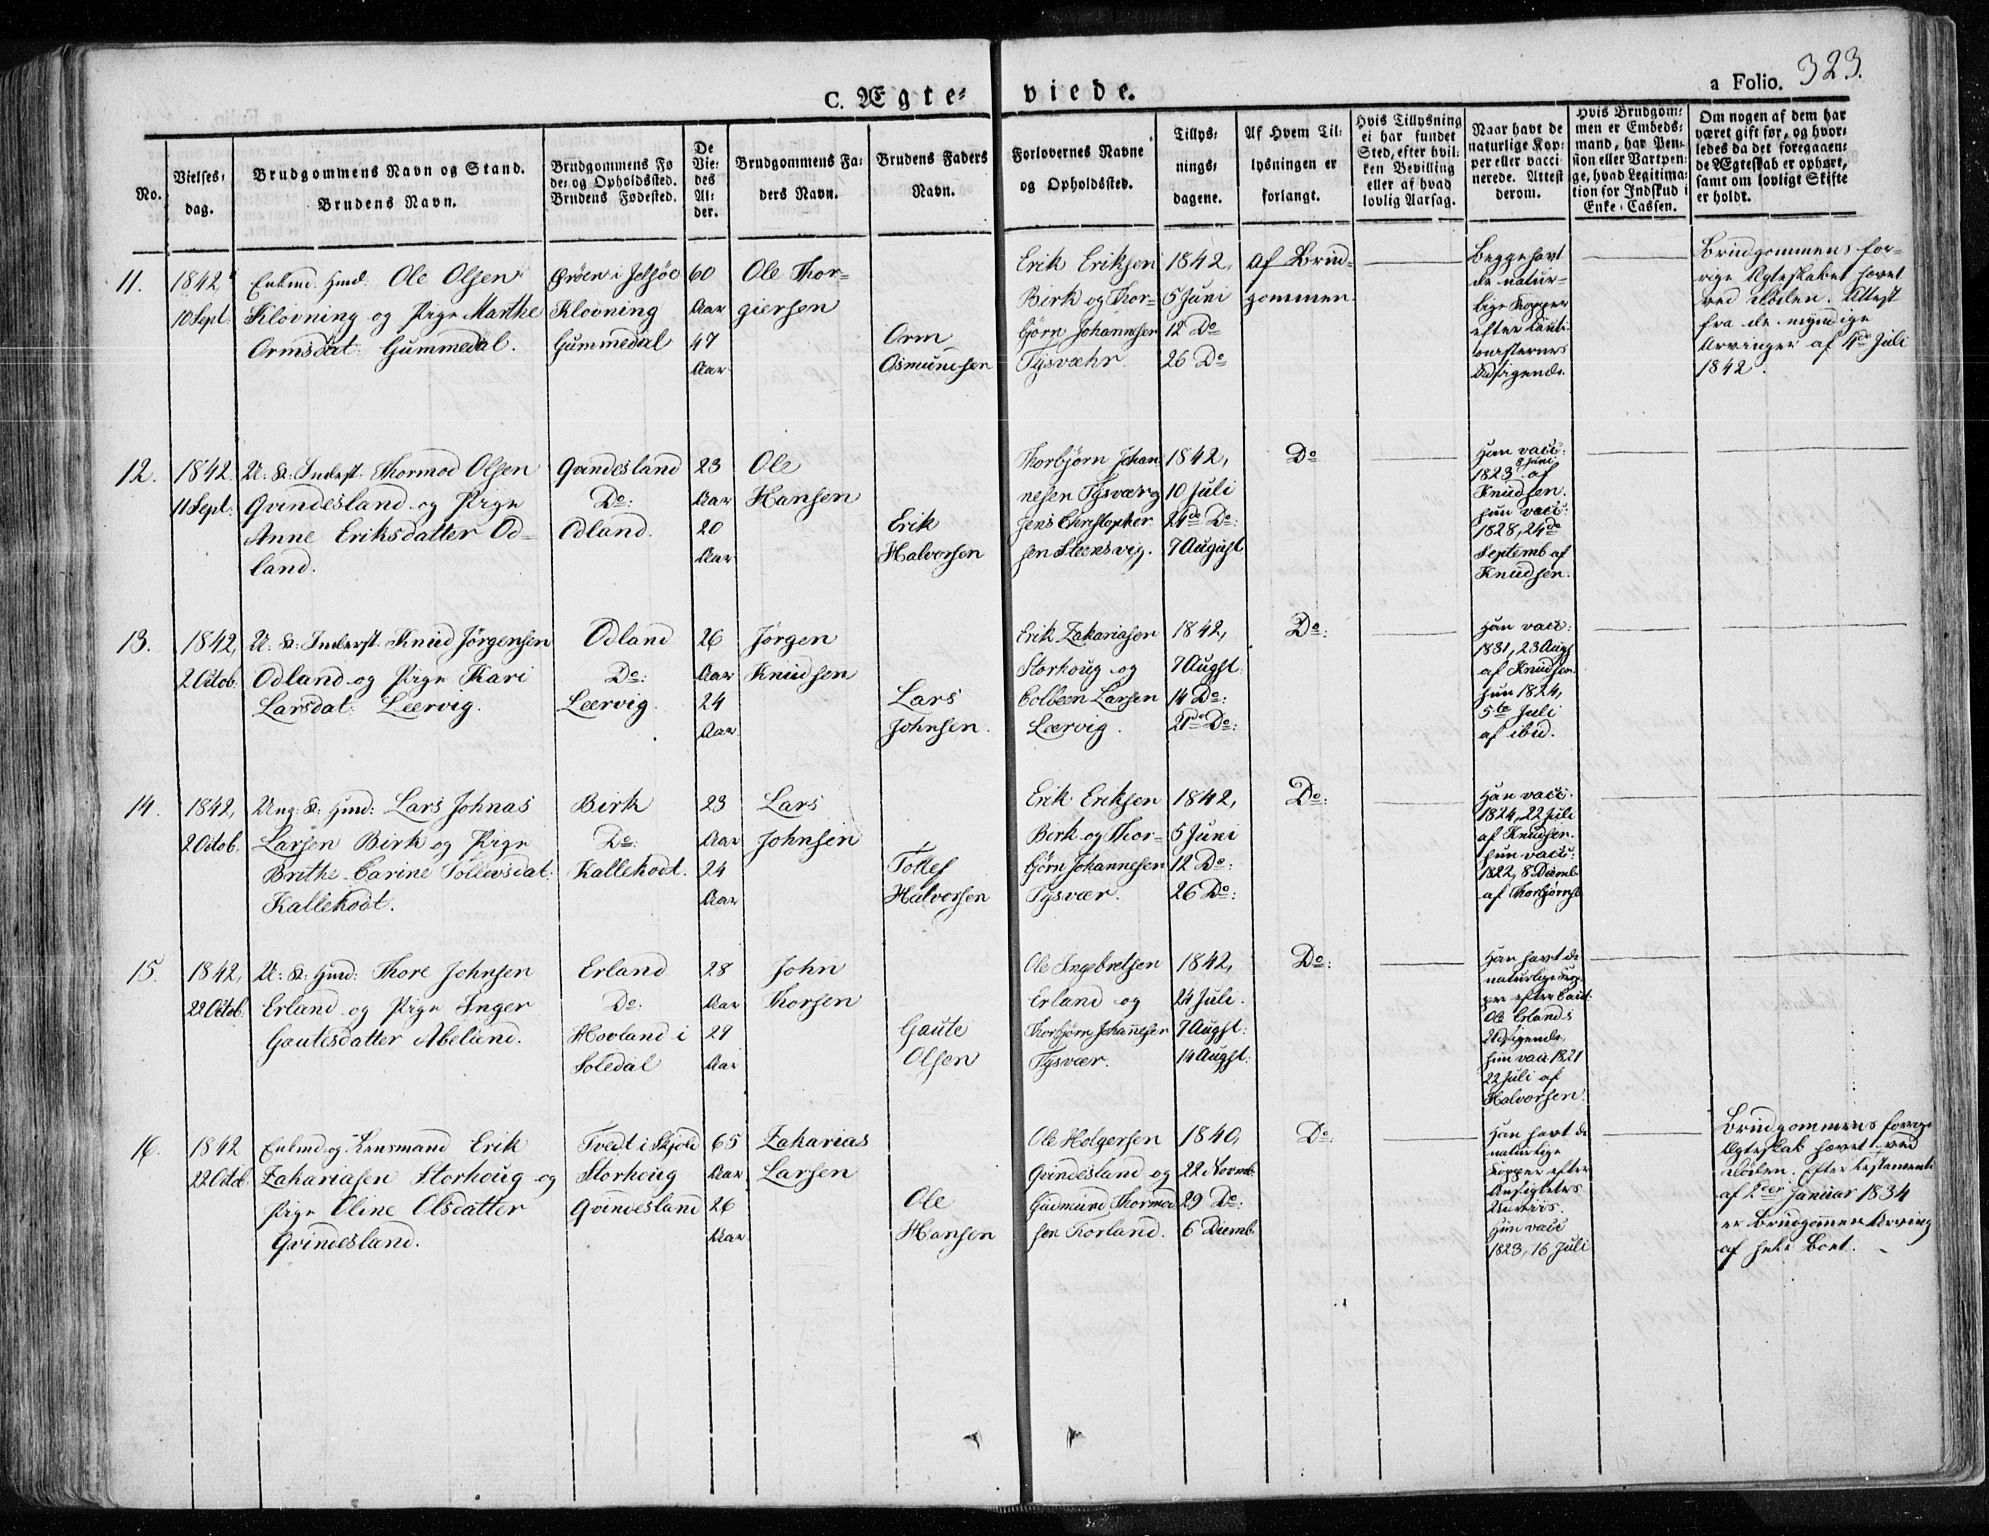 C. Ægte- viede.
a Folio. 323.
No.
Vielses-
dag.
Brudgommens Navn og Stand.
Brudens Navn.
Brudgommens Fø
de- og Opholdssted.
Brudens Fødested.
De
Vie-
des
Al-
der.
Brudgommens Fa-
ders Navn.
Brudens Faders
Navn.
Forlovernes Navne
og Opholdssted.
Tillys-
nings-
dagene.
Af Hvem Til-
lysningen er
forlangt.
Hvis Tillysning
ei har fundet
Sted, efter hvil-
ken Bevilling
eller af hvad
lovlig Aarsag.
Naar havt de
naturlige Kop-
per eller vacci-
nerede. Attest
derom.
Hvis Brudgom-
men er Embeds-
mand, har Pen-
sion eller Vartpen-
ge, hvad Legitima-
tion for Indskud i
Enke-Cassen.
Om nogen af dem har
været gift før, og hvor-
ledes da det foregaaen-
de Ægteskab er ophørt,
samt om lovligt Skifte
er holdt.
11.
1842
10 Sept.
Enkmd. Hmd: Ole Olsen
Klovning og Pige Marthe
Ormsdat: Gummedal.
Ørøen i Jelsøe
Klovning
Gummedal
60
Aar
47
Aar
Ole Thor-
giersen
Orm
Osmundsen
Erik Eriksen
Birk og Thor-
bjørn Johannesen
Tysvæhr.
1842,
5 Juni
12 Do
26 Do
Af Brud-
gommen
Begge havt
de natur-
lige Kopper
efter Cauti-
onisternes
Udsigende.
Brudgommens for-
rige Ægteskabet hævet
ved Døden. Attest
fra de myndige
Arvinger af 4de Juli
1842.
12.
1842
11 Sept.
U: K: Inderst. Thormod Olsen
Qvindesland og Pige
Anne Eriksdatter Od-
land.
Qvindesland
Do:
Odland.
23
Aar
20
Aar
Ole
Hansen
Erik
Halvorsen
Thorbjørn Johan
nesen Tysværg
Jens Christopher
sen Steensvig.
1842,
10 Juli
24de Do:
7 August
Do
Han vacc:
8 Juni
1823 af
Knudsen.
Hun vacc:
1828, 24de
Septemb af
Knudsen.
13.
1842,
2 Octob.
U: K: Inderst. Knud Jørgensen
Odland og Pige Kari
Larsdat: Leervig.
Odland
Do:
Leervig.
26
Aar
24
Aar
Jørgen
Knudsen
Lars
Johnsen.
Erik Zakariasen
Storhoug og
Colbeen Larsen
Lærvig.
1842,
7 Augst.
14 Do:
21de Do:
Do:
Han vacc:
1831, 23 Augs
af Knudsen.
Hun 1824,
5te Juli
af ibid.
14.
1842,
2 Octob.
Ung: K: Hmd: Lars Johnas
Larsen Birk og Pige
Brithe Carine Tollevsdat:
Kallekodt.
Birk
Do:
Kallekodt.
23
Aar
24
Aar
Lars
Johnsen
Tollef
Halvorsen
Erik Eriksen
Birk og Thor-
bjørn Johannesen
Tysvær.
1842,
5 Juni
12 Do:
26 Do:
Do:
Han vacc:
1824, 22 Juli
af Knudsen.
Hun vacc:
1822, 8 Decemb
af Thorbjørns
15.
1842,
22 Octob.
U: K: Hmd: Thore Johnsen
Erland og Pige Inger
Gautesdatter Abeland.
Erland
Do:
Hovland i
Soledal
28
Aar
29
Aar
John
Thorsen
Gaute
Olsen
Ole Ingebretsen
Erland og
Thorbjørn Johannesen
Tysvær.
1842,
24 Juli.
7 Augst:
14 Augst:
Do:
Han havt de
naturlige Kop
per efter Caut:
Ole Erlands
Udsigende,
Hun vacc 1821
22 Juli af
Halvorsen.
16.
1842
22 Octob
Enkmd. og Lensmand Erik
Zakariasen Storhoug og
Pige Oline Olsdatter
Qvindesland.
Tvedt i Skjold
Storhoug
Qvindesland
65
Aar
26
Aar
Zakarias
Larsen
Ole
Hansen
Ole Holgersen
Qvindesland og
Gudmund Thormod
sen Forland.
1840,
22 Novmb.
29 Do:
6 Dcemb
Do:
Han havt de
naturlige
Kopper efter
Ansigtets
Udvis.
Hun vacc
1823, 16 Juli
Brudgommens forrige
Ægteskab hævet ved
Døden. Efter Testament:
af 2den Januar 1834
er Brudgommen Arving
af hele Boet.